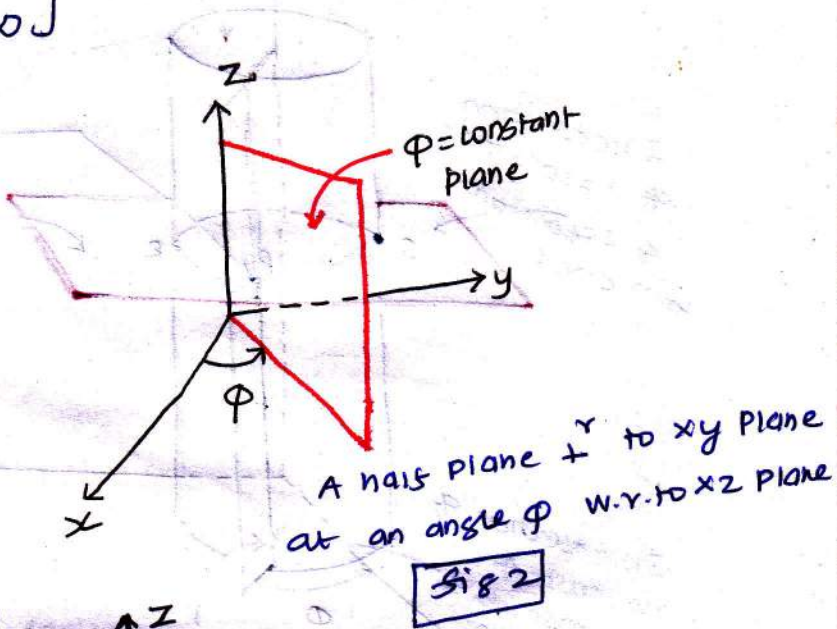 z
φ = constant
plane
y
φ
x
A half plane ⊥r to xy plane
at an angle φ w.r.to xz plane
fig 2
z